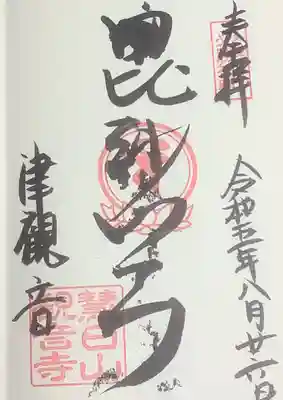 奉拝
令和五年八月廿六日
毘沙門天
津観音
恵日山
観音寺